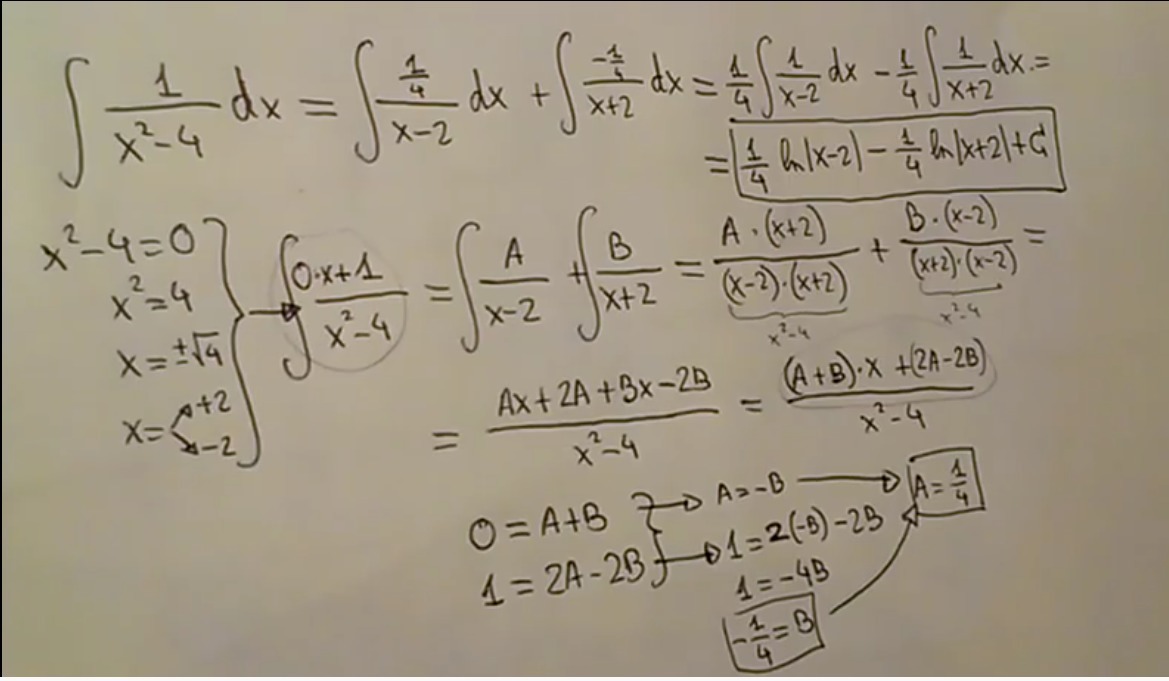 ∫ 1/(x²-4) dx = ∫ (1/4)/(x-2) dx + ∫ (-1/4)/(x+2) dx = 1/4 ∫ 1/(x-2) dx - 1/4 ∫ 1/(x+2) dx =
= 1/4 ln|x-2| - 1/4 ln|x+2| + C
x²-4=0
x²=4
x=±√4
x= +2
-2
∫ (0·x+1)/(x²-4) = ∫ A/(x-2) + ∫ B/(x+2) = A·(x+2)/((x-2)·(x+2)) + B·(x-2)/((x+2)·(x-2)) =
x²-4 x²-4
= (Ax+2A+Bx-2B)/(x²-4) = ((A+B)·x+(2A-2B))/(x²-4)
0=A+B → A=-B → A=1/4
1=2A-2B → 1=2(-B)-2B
1=-4B
-1/4=B